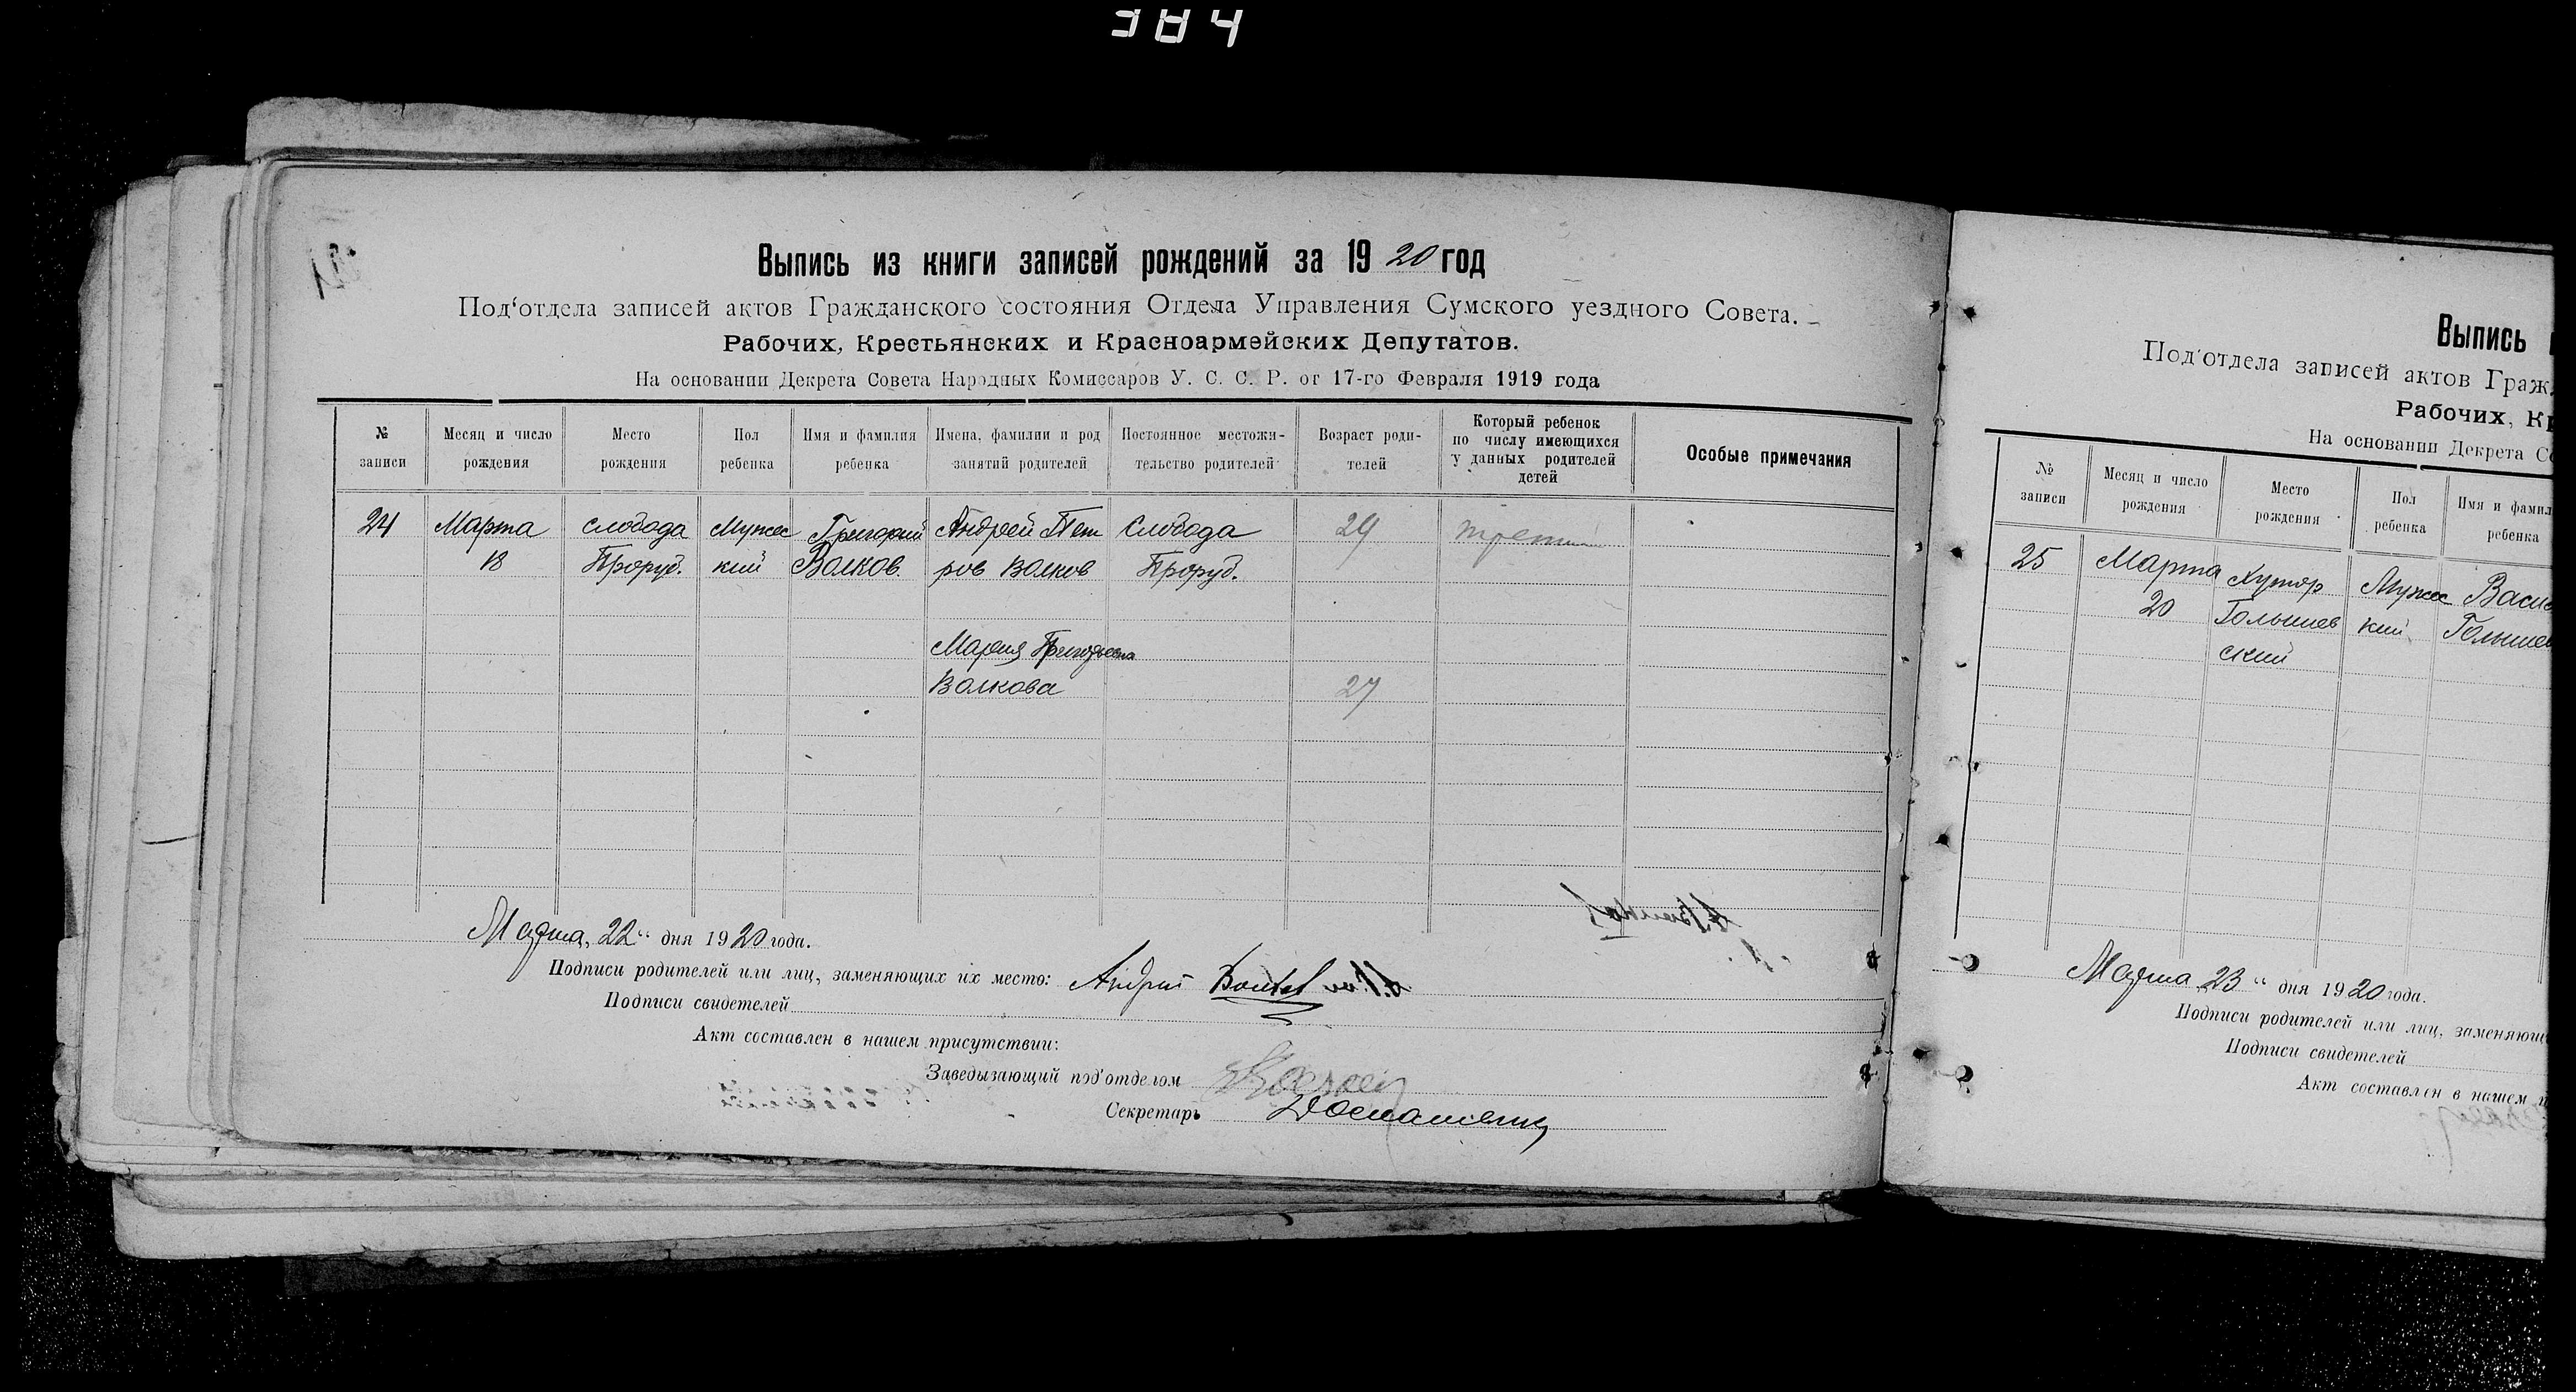 384
Выпись из книги записей рождений за 1920 год
Под‘отдела записей актов Гражданского состояния Отдела Управления Сумского уездного Совета.
Рабочих, Крестьянских и Красноармейских Депутатов.
На основании Декрета Совета Народных Комиссаров У. С. С. Р. от 17-го Февраля 1919 года
№ записи
Месяц и число рождения
Место рождения
Пол ребенка
Имя и фамилия ребенка
Имена, фамилии и род занятий родителей
Постоянное местожи-
тельство родителей
Возраст роди-
телей
Который ребенок
по числу имеющихся
у данных родителей
детей
Особые примечания
24 Марта слобода Мужес Григорий Андрей Пет Слобода 29 трет
18 Проруб. кий Волков. ров Волков Проруб.
Мария Григорьевна
Волкова 27
Марта, 22 “ дня 1920 года.
Подписи родителей или лиц, заменяющих их место: Андрей Волков
Подписи свидетелей
Акт составлен в нашем присутствии:
Заведызающий под‘отделом
Секретарь
Выпись
Под‘отдела записей актов Граж
Рабочих, Кр
На основании Декрета Со
№ записи
Месяц и число рождения
Место рождения
Пол ребенка
Имя и фамил
ребенка
25 Марта Хутор Мужес Васи
20 Голышев кий Голышев
ский
Марта 23 “ дня 1920 года.
Подписи родителей или лиц, заменяющи
Подписи свидетелей
Акт составлен в нашем п